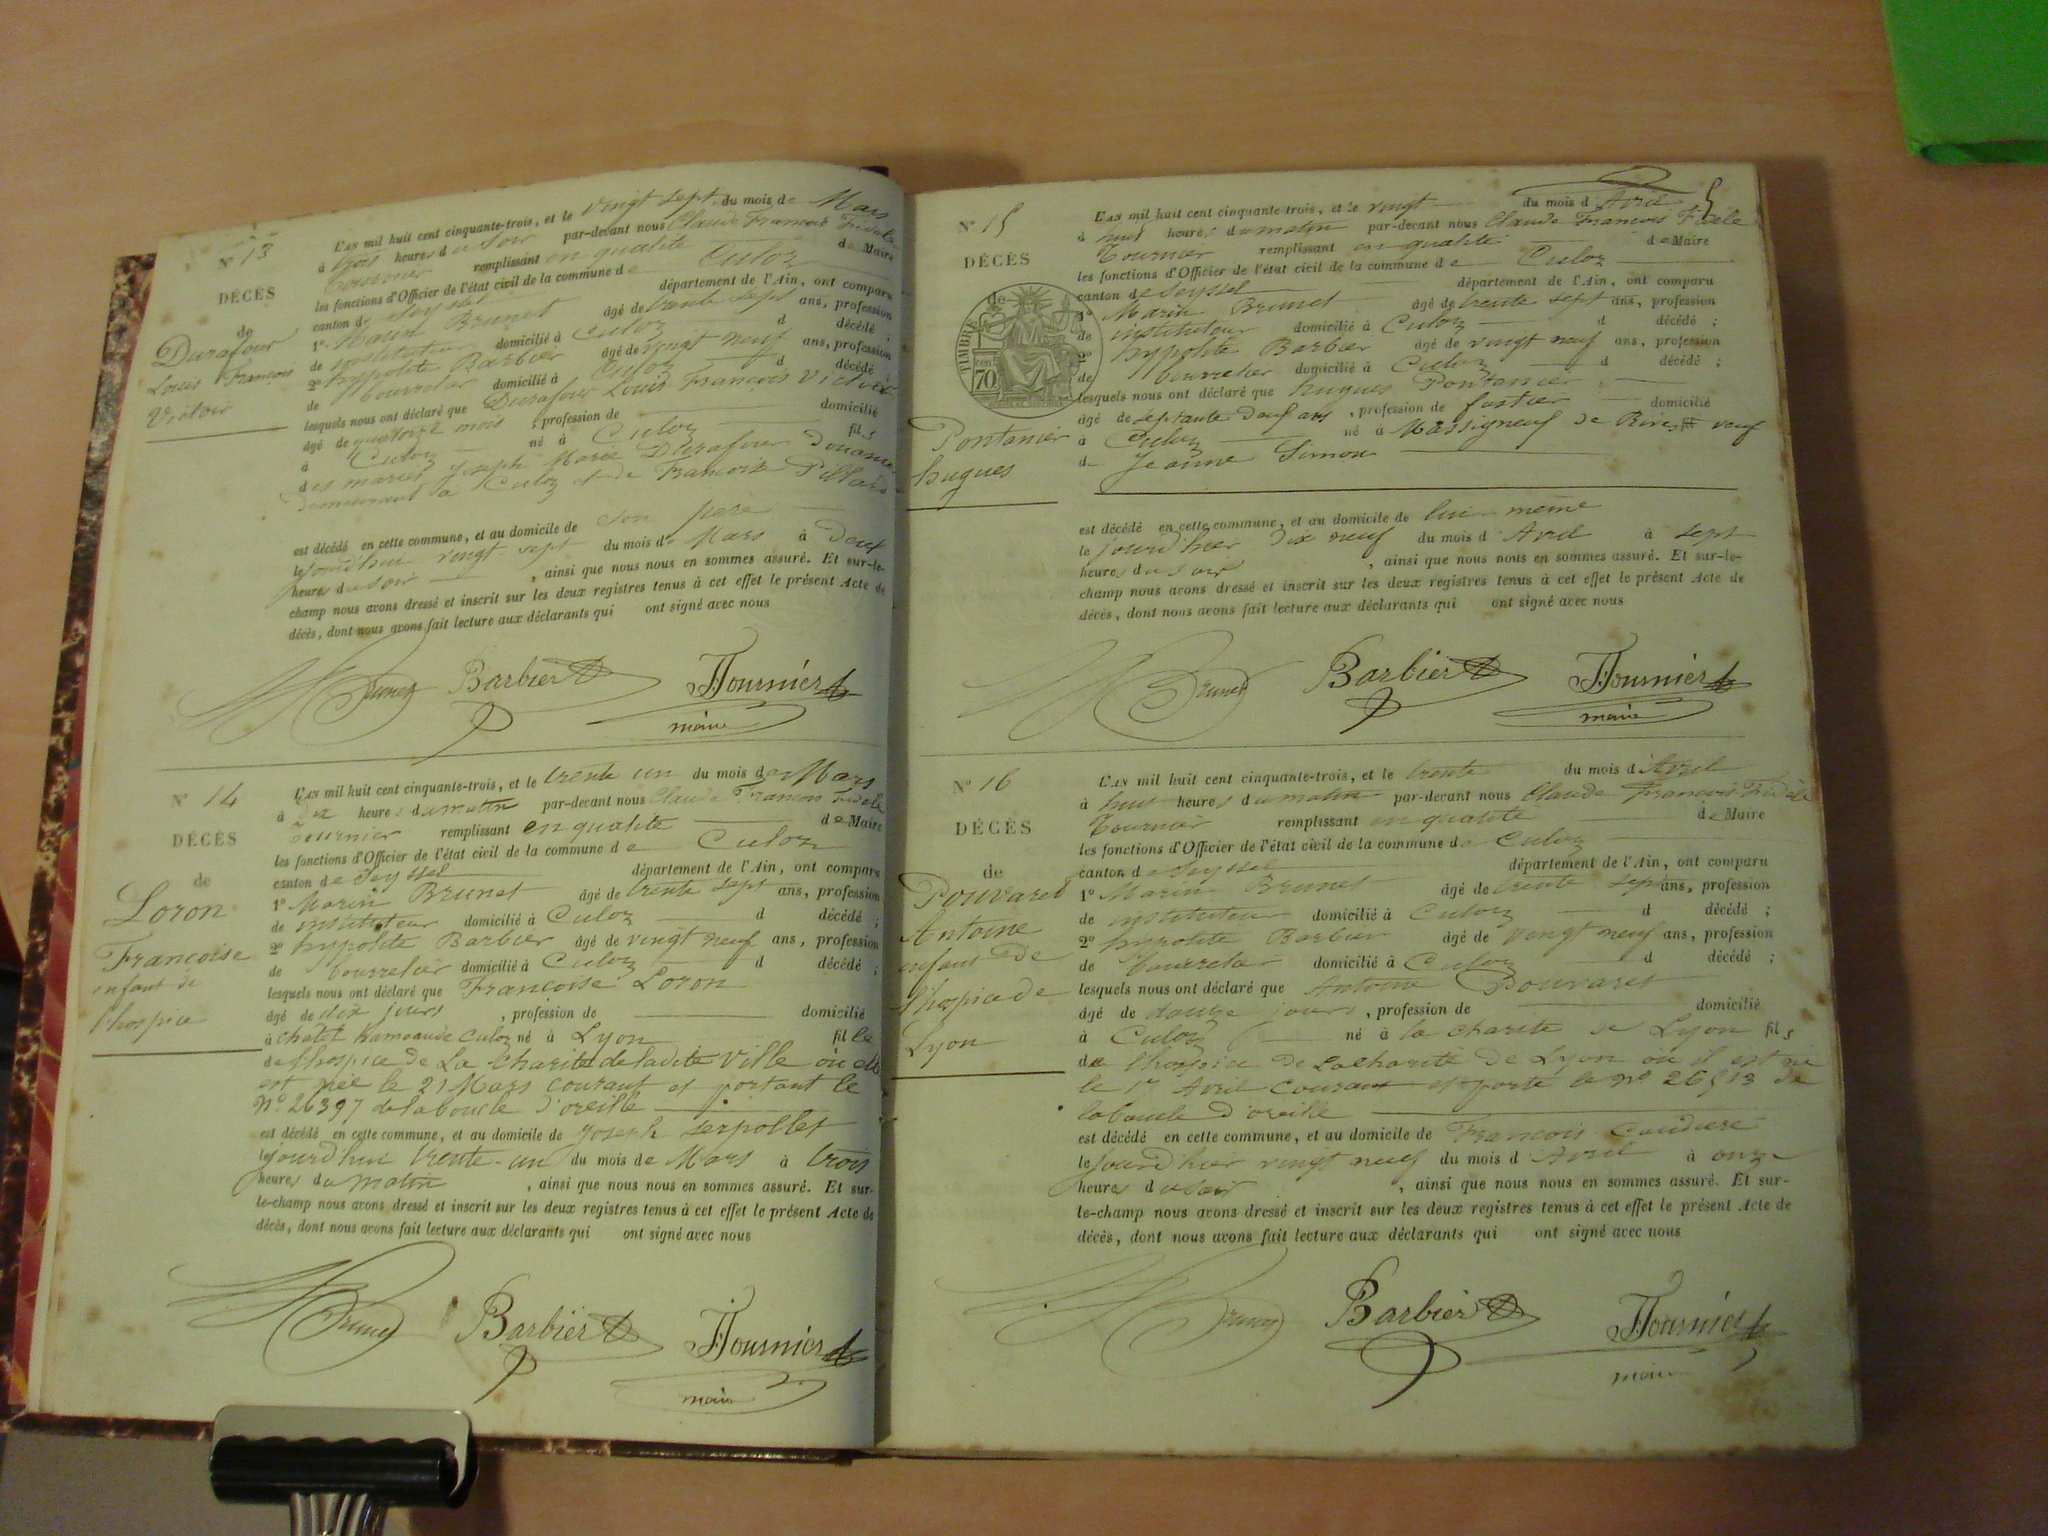 N° 13
DÉCÈS
de
Durafour
Louis François
Victoir
L'AN mil huit cent cinquante-trois, et le vingt sept du mois de Mars
à trois heures du soir par-devant nous Claude François Fidele
Tournier remplissant en qualité de Maire
les fonctions d'Officier de l'état civil de la commune de Culoz
canton de Seyssel département de l'Ain, ont comparu
1° Marin Brunet âgé de trente sept ans, profession
de instituteur domicilié à Culoz d décédé ;
2° hypolite Barbier âgé de vingt neuf ans, profession
de bourrelier domicilié à Culoz d décédé ;
lesquels nous ont déclaré que Durafour Louis François Victoir
âgé de quatorze mois , profession de domicilié
à Culoz né à Culoz fils
des mariés Joseph Marie Durafour Douanier
demeurant à Culoz et de Francoise
est décédé en cette commune, et au domicile de son pere
le jourd'hui vingt sept du mois de Mars à Deux
heures du soir , ainsi que nous nous en sommes assuré. Et sur-le-
champ nous avons dressé et inscrit sur les deux registres tenus à cet effet le présent Acte de
décès, dont nous avons fait lecture aux déclarants qui ont signé avec nous
Brunet Barbier Tournier
maire
N° 14
DÉCÈS
de
Loron
Francoise
enfant de
l'hospice
L'AN mil huit cent cinquante-trois, et le trente un du mois de Mars
à heures du matin par-devant nous Claude François Fidele
Tournier remplissant en qualité de Maire
les fonctions d'Officier de l'état civil de la commune de Culoz
canton de Seyssel département de l'Ain, ont comparu
1° Marin Brunet âgé de trente sept ans, profession
de instituteur domicilié à Culoz d décédé ;
2° hypolite Barbier âgé de vingt neuf ans, profession
de bourrelier domicilié à Culoz d décédé ;
lesquels nous ont déclaré que Francoise Loron
âgé de dix jours , profession de domicilié
à chatel Culoz né à Lyon fille
de l'hospice de La Charité de ladite ville où elle
est née le 21 Mars courant et portant le
N° 26397 de la boucle d'oreille
est décédé en cette commune, et au domicile de Joseph Serpollet
le jourd'hui trente-un du mois de Mars à trois
heures du matin , ainsi que nous nous en sommes assuré. Et sur-
le-champ nous avons dressé et inscrit sur les deux registres tenus à cet effet le présent Acte de
décès, dont nous avons fait lecture aux déclarants qui ont signé avec nous
Brunet Barbier Tournier
maire
5
N° 15
DÉCÈS
de
TIMBRE
70
Pontanier
hugues
L'AN mil huit cent cinquante-trois, et le vingt du mois d'Avril
à huit heures du matin par-devant nous Claude François Fidele
Tournier remplissant en qualité de Maire
les fonctions d'Officier de l'état civil de la commune de Culoz
canton de Seyssel département de l'Ain, ont comparu
1° Marin Brunet âgé de trente sept ans, profession
de instituteur domicilié à Culoz d décédé ;
2° hypolite Barbier âgé de vingt neuf ans, profession
de bourrelier domicilié à Culoz d décédé ;
lesquels nous ont déclaré que hugues Pontanier
âgé de septante deux ans , profession de fustier domicilié
à Culoz né à Massigneux de Rives veuf
de Jeanne Simon
est décédé en cette commune, et au domicile de lui-même
le jourd'hier dix neuf du mois d'Avril à sept
heures du soir , ainsi que nous nous en sommes assuré. Et sur-le-
champ nous avons dressé et inscrit sur les deux registres tenus à cet effet le présent Acte de
décès, dont nous avons fait lecture aux déclarants qui ont signé avec nous
Brunet Barbier Tournier
maire
N° 16
DÉCÈS
de
Pouvaret
Antoine
enfant de
l'hospice de
Lyon
L'AN mil huit cent cinquante-trois, et le trente du mois d'Avril
à huit heures du matin par-devant nous Claude François Fidèle
Tournier remplissant en qualité de Maire
les fonctions d'Officier de l'état civil de la commune de Culoz
canton de Seyssel département de l'Ain, ont comparu
1° Marin Brunet âgé de trente sept ans, profession
de instituteur domicilié à Culoz d décédé ;
2° hypolite Barbier âgé de vingt neuf ans, profession
de bourrelier domicilié à Culoz d décédé ;
lesquels nous ont déclaré que Antoine Pouvaret
âgé de jours , profession de domicilié
à Culoz né à la charité de Lyon fils
de l'hospice de La charité de Lyon où il est né
le Avril courant et porte le N° 26513 de
la boucle d'oreille
est décédé en cette commune, et au domicile de François
le jourd'hier vingt neuf du mois d'Avril à onze
heures du soir , ainsi que nous nous en sommes assuré. Et sur-
le-champ nous avons dressé et inscrit sur les deux registres tenus à cet effet le présent Acte de
décès, dont nous avons fait lecture aux déclarants qui ont signé avec nous
Brunet Barbier Tournier
maire